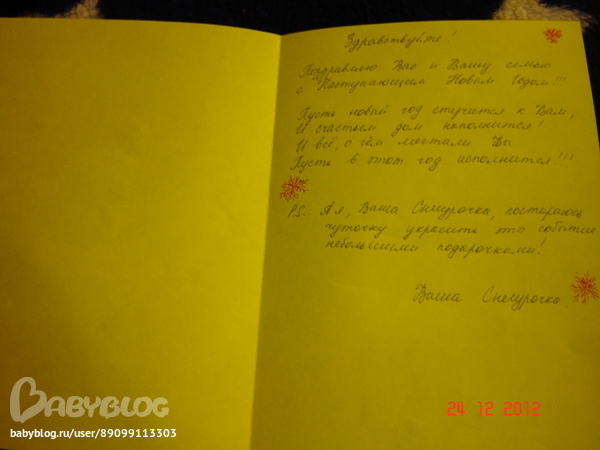 Здравствуйте!
Поздравляю Вас и Вашу семью
с Наступающим Новым Годом!!!
Пусть новый год стучится к Вам,
И счастьем дом наполнится!
И всё, о чём мечтали Вы
Пусть в этот год исполнится!!!
P.S.: А я, Ваша Снегурочка, постараюсь
чуточку украсить это событие
небольшими подарочками!
Ваша Снегурочка.
BABYBLOG
babyblog.ru/user/89099113303
24 12 2012